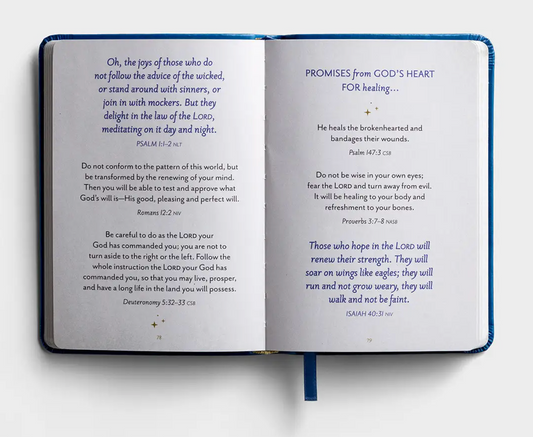 Oh, the joys of those who do
not follow the advice of the wicked,
or stand around with sinners, or
join in with mockers. But they
delight in the law of the LORD,
meditating on it day and night.
PSALM 1:1–2 NLT
Do not conform to the pattern of this world, but
be transformed by the renewing of your mind.
Then you will be able to test and approve what
God's will is—His good, pleasing and perfect will.
Romans 12:2 NIV
Be careful to do as the LORD your
God has commanded you; you are not to
turn aside to the right or the left. Follow the
whole instruction the LORD your God has
commanded you, so that you may live, prosper,
and have a long life in the land you will possess.
Deuteronomy 5:32–33 CSB
PROMISES from GOD'S HEART
FOR healing...
He heals the brokenhearted and
bandages their wounds.
Psalm 147:3 CSB
Do not be wise in your own eyes;
fear the LORD and turn away from evil.
It will be healing to your body and
refreshment to your bones.
Proverbs 3:7–8 NASB
Those who hope in the LORD will
renew their strength. They will
soar on wings like eagles; they will
run and not grow weary, they will
walk and not be faint.
ISAIAH 40:31 NIV